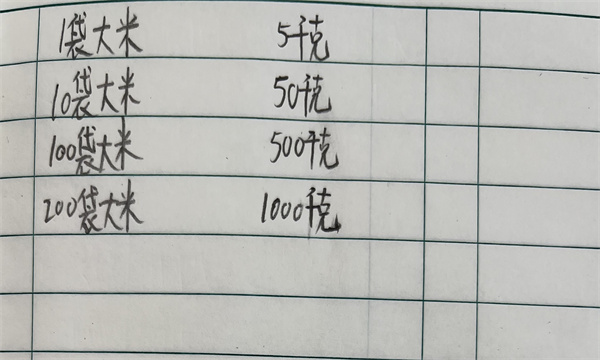 1袋大米 5千克
10袋大米 50千克
100袋大米 500千克
200袋大米 1000千克